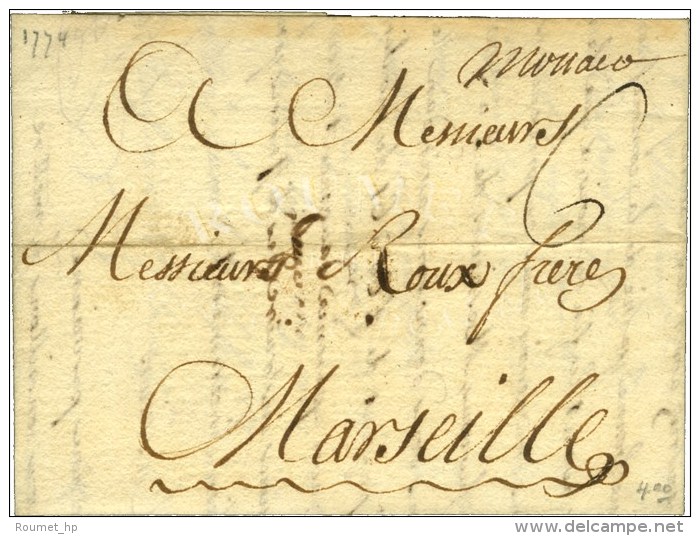 1774
Monaco
A Messieurs
Messieurs Roux freres
Marseille
400
Roumet_hp
www.delcampe.net